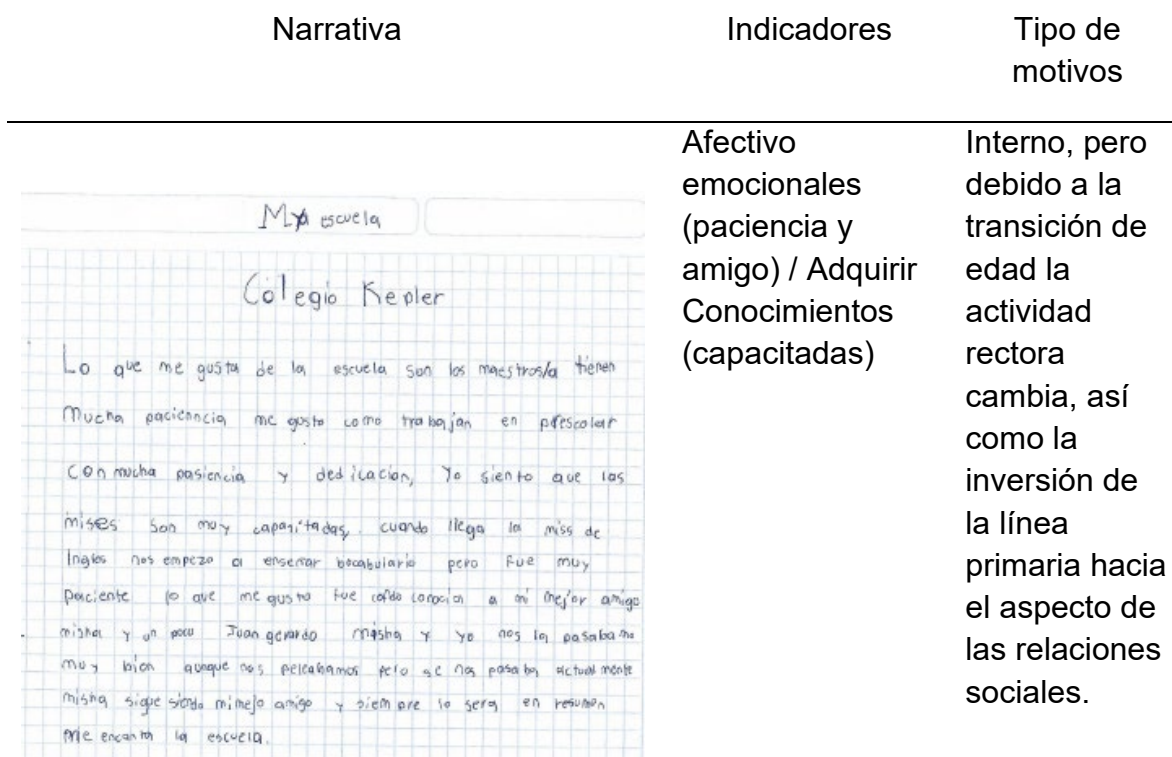 Narrativa
Indicadores
Tipo de
motivos
My escuela
Colegio Kepler
Lo que me gusta de la escuela son los maestros/a tienen
Mucha paciencia me gusto como trabajan en prescolar
Con mucha pasiencia y dedicacion, Yo siento que las
mises son muy capasitadas, cuando llega la miss de
Ingles nos empezo a enseñar bocabulario pero fue muy
paciente lo que me gusto fue conoci a mi mejor amigo
misha y un poco Juan gerardo misha y yo nos la pasabamo
muy bien aunque nos peleabamos pero se nos pasaba, actualmente
misha sigue siendo mi mejo amigo y siempre lo sera, en resumen
me encanta la escuela.
Afectivo
emocionales
(paciencia y
amigo) / Adquirir
Conocimientos
(capacitadas)
Interno, pero
debido a la
transición de
edad la
actividad
rectora
cambia, así
como la
inversión de
la línea
primaria hacia
el aspecto de
las relaciones
sociales.